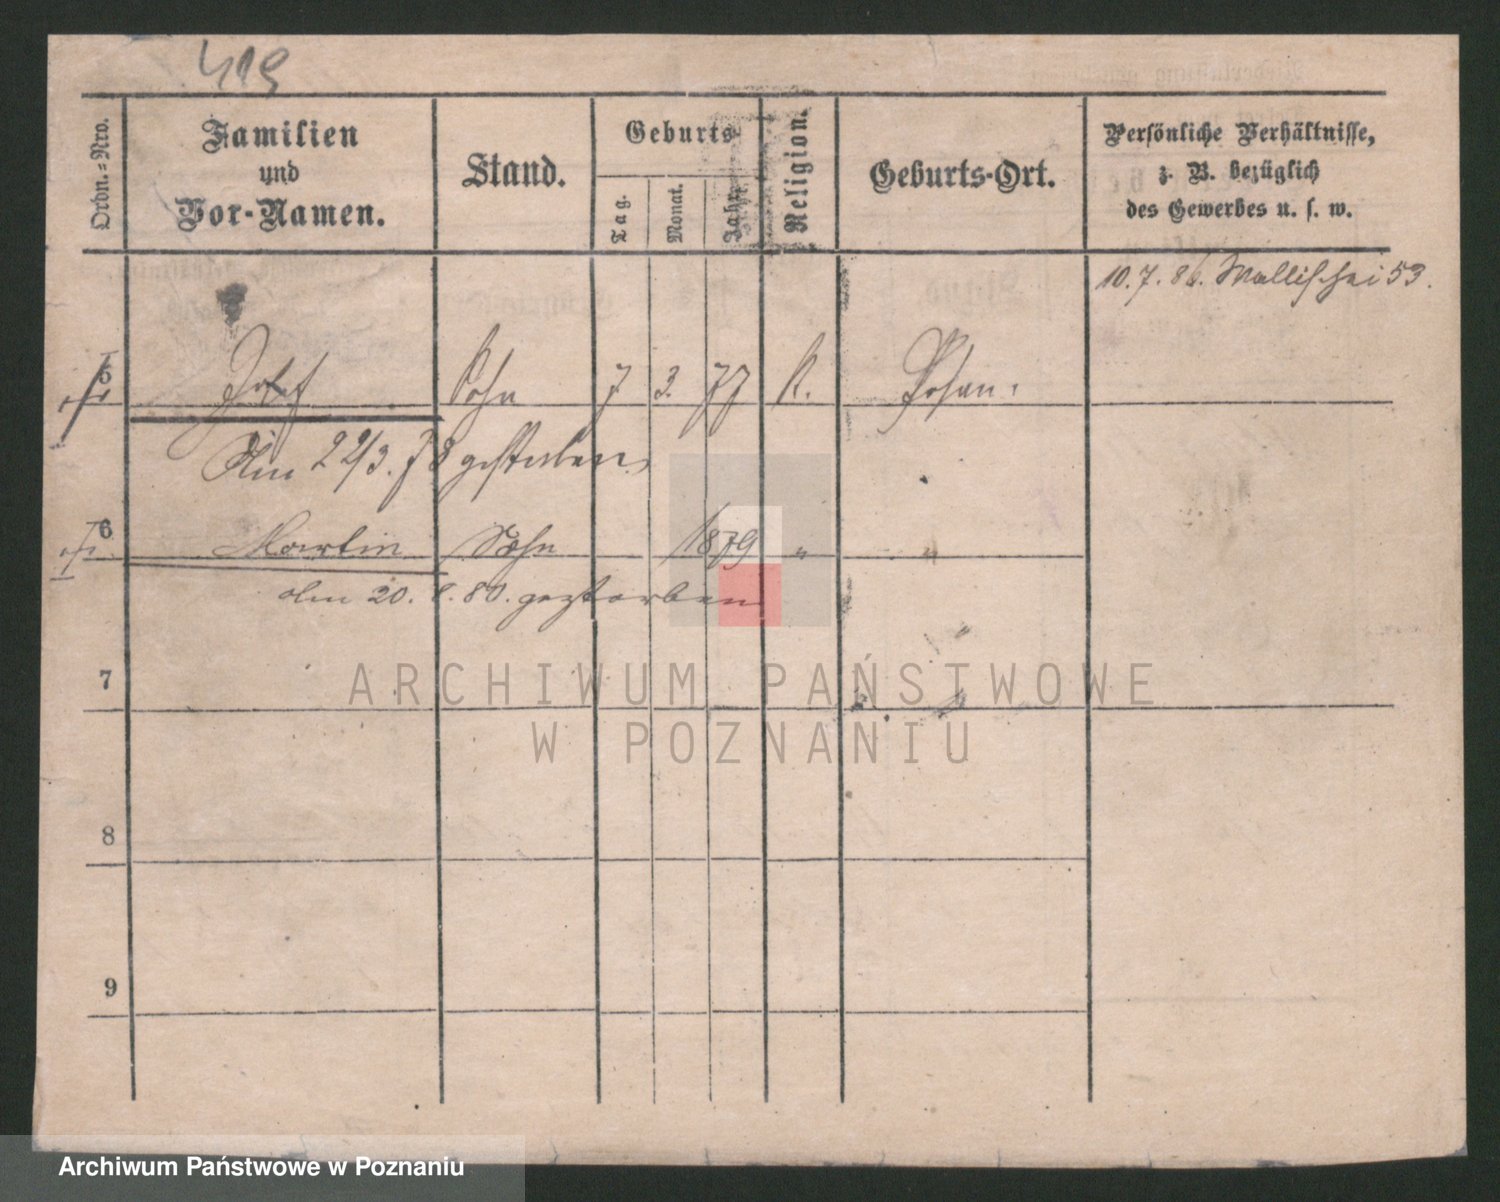 419
Ordn.=Nro.
Familien
und
Vor-Namen.
Stand.
Geburts
Tag.
Monat.
Jahr.
Religion.
Geburts-Ort.
Persönliche Verhältnisse,
z. B. bezüglich
des Gewerbes u. s. w.
10. 7. 86. Wallischei 53.
5 Josef Sohn 7 3. 77 K. Posen.
Am 22/3. 78 gestorben
6 Martin Sohn 1879 " "
Am 20. 80. gestorben
7
8
9
ARCHIWUM PAŃSTWOWE
W POZNANIU
Archiwum Państwowe w Poznaniu